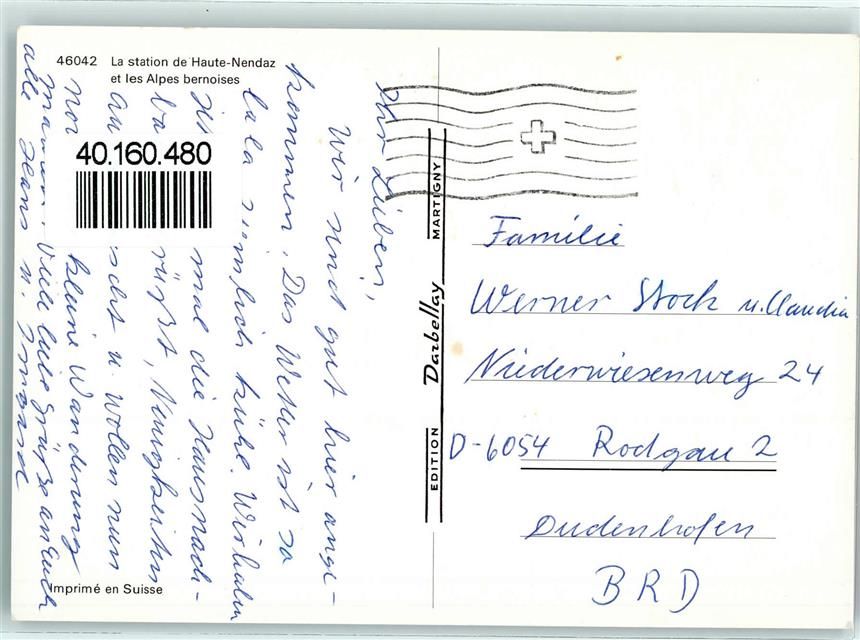 46042 La station de Haute-Nendaz
et les Alpes bernoises
40.160.480
Ihr Lieben,
Wir sind gut hier ange-
kommen. Das Wetter ist so
la la ziemlich kühl. Wir haben
mal die Hausnach-
rüßt, Neuigkeiten
u. wollen nun
kleine Wanderung
machen. Viele liebe Grüße an Euch
alle Hans u.
EDITION Darbellay MARTIGNY
Familie
Werner Stock u. Claudia
Niederwiesenweg 24
D-6054 Rodgau 2
Dudenhofen
BRD
Imprimé en Suisse